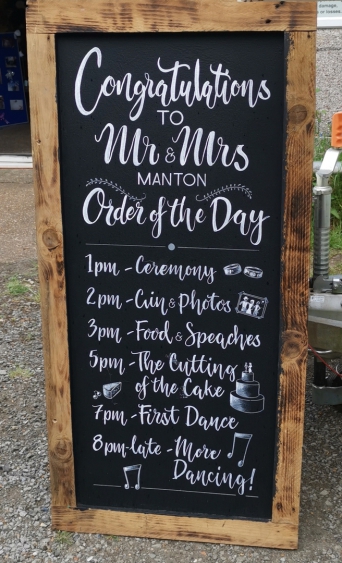 damage,
or losses.
Congratulations
TO
Mr & Mrs
MANTON
Order of the Day
1pm - Ceremony
2pm - Gin & Photos
3pm - Food & Speaches
5pm - The Cutting
of the Cake
7pm - First Dance
8pm-late - More
Dancing!